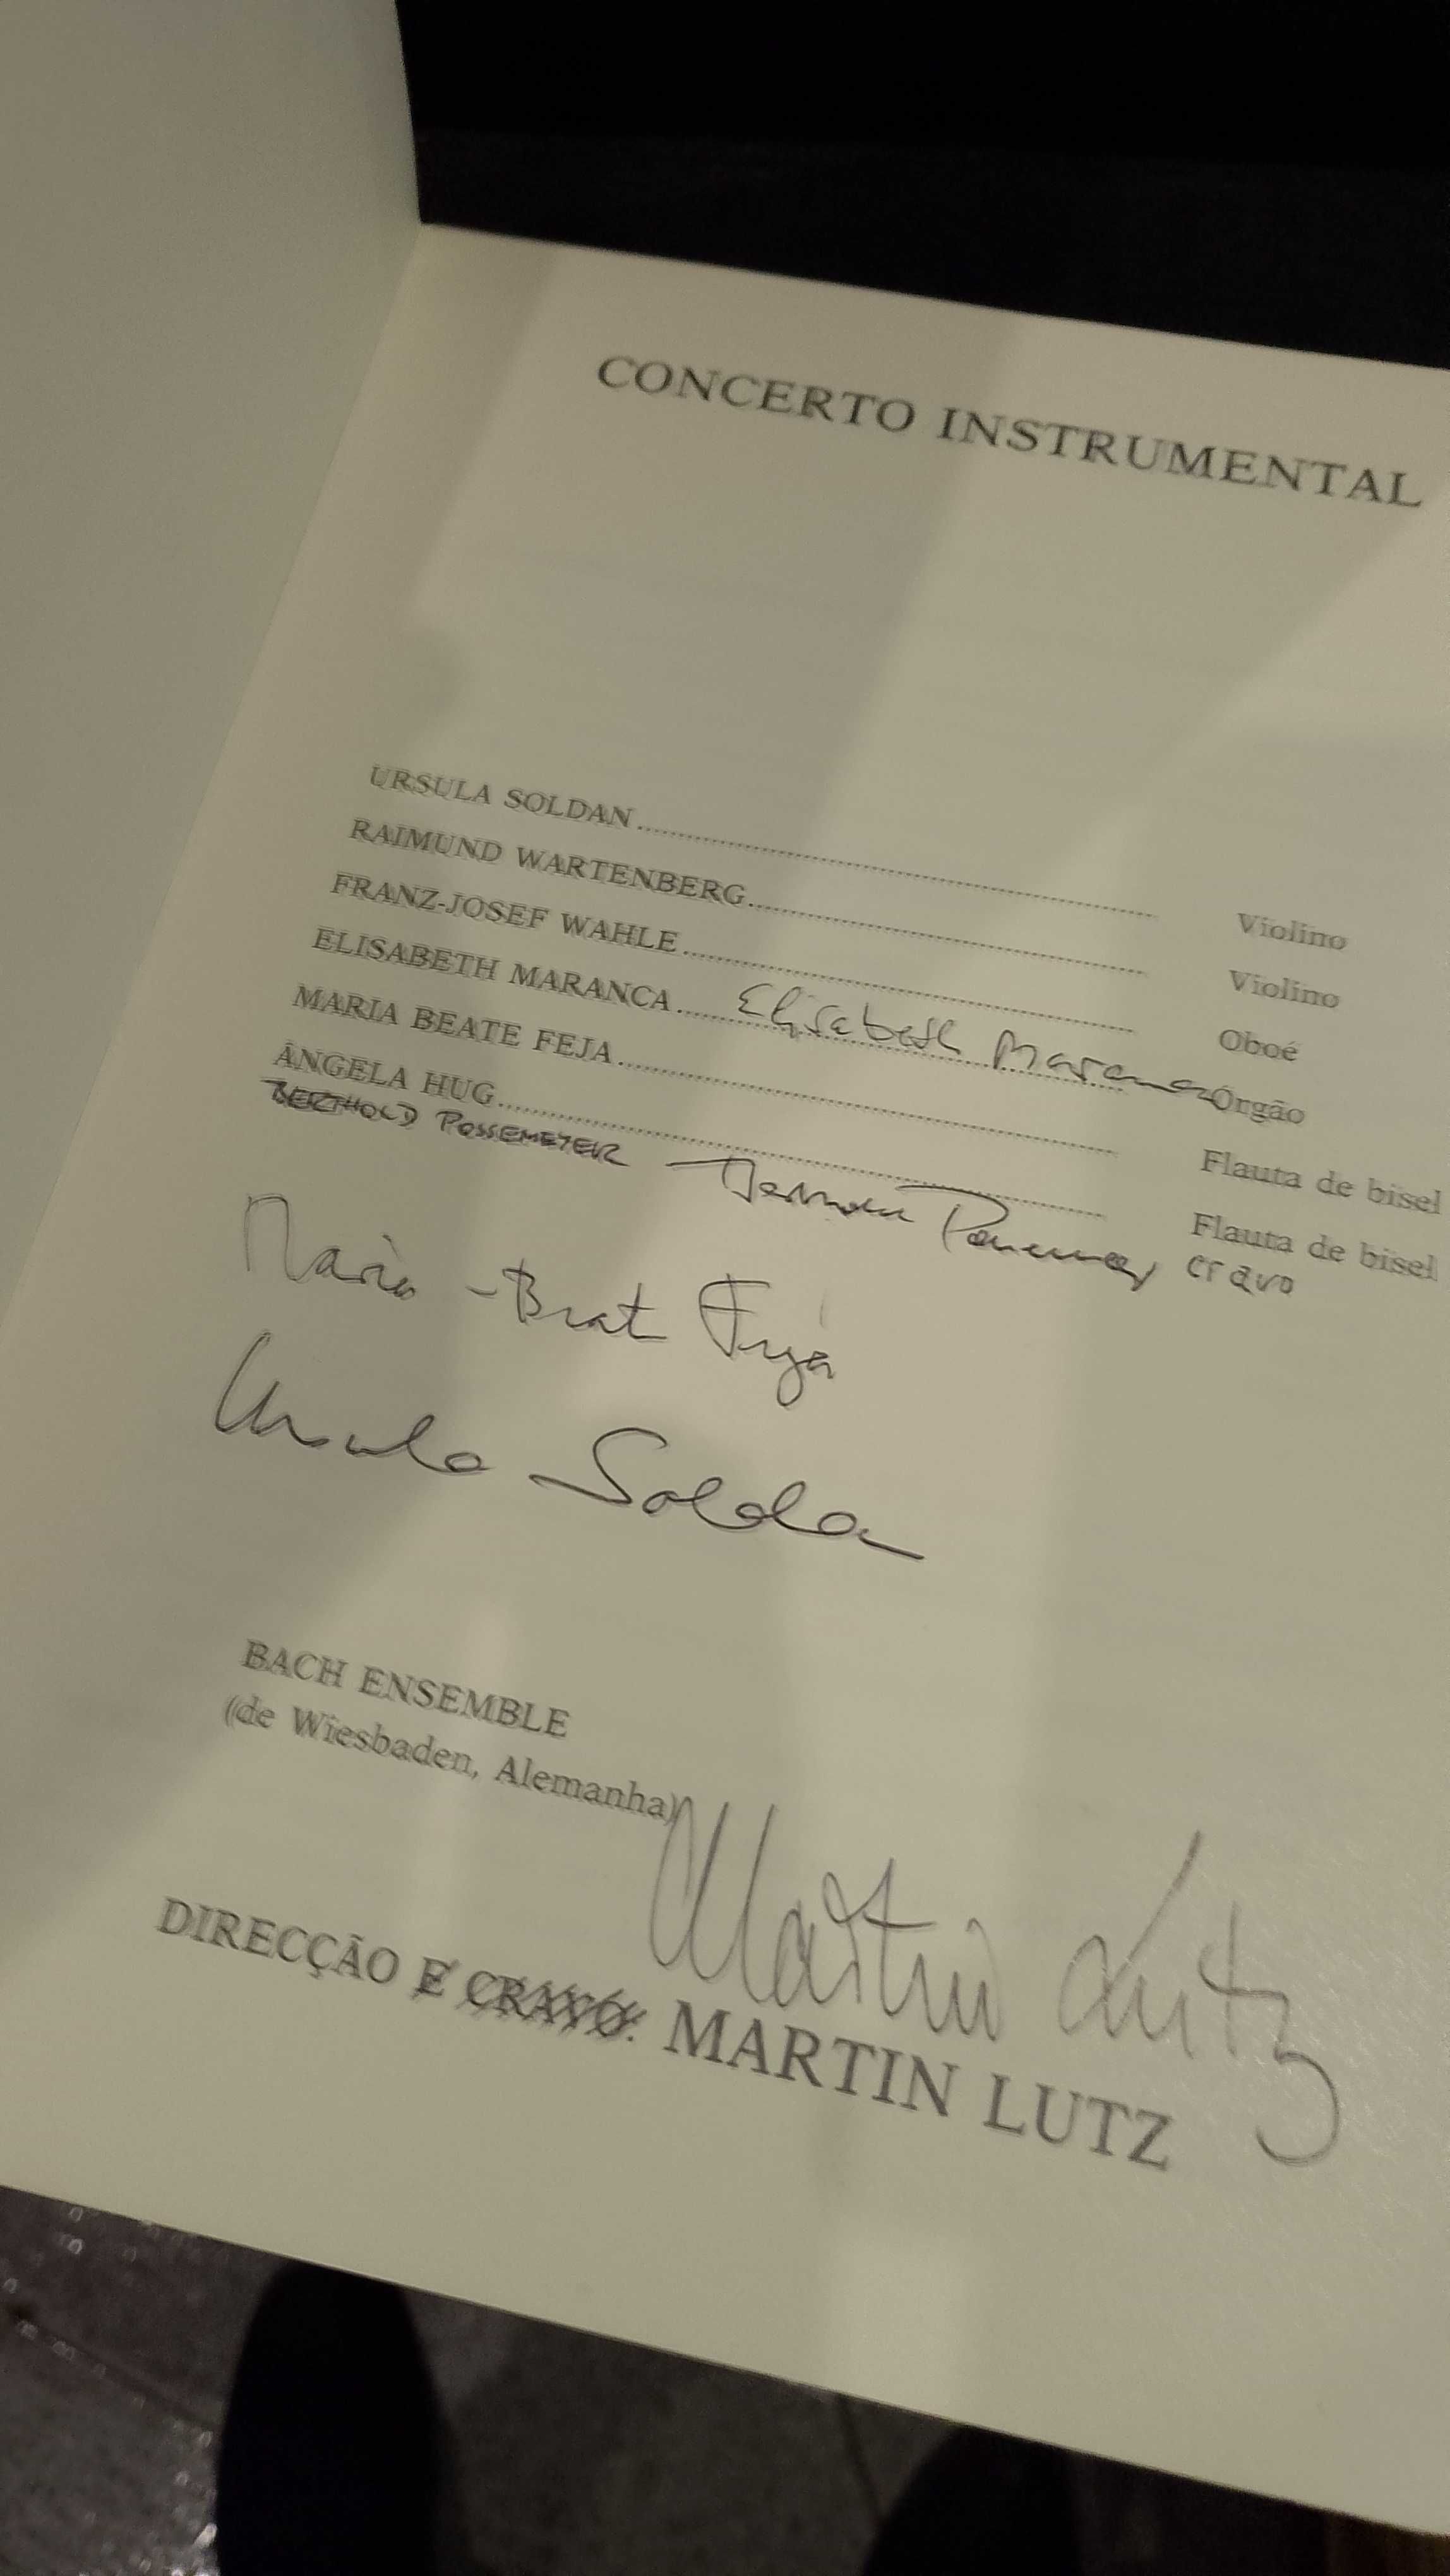 CONCERTO INSTRUMENTAL
URSULA SOLDAN........ Violino
RAIMUND WARTENBERG........ Violino
FRANZ-JOSEF WAHLE........ Oboé
ELISABETH MARANCA........ Elisabeth Maranca Órgão
MARIA BEATE FEJA........ Flauta de bisel
ÂNGELA HUG........ Flauta de bisel
BERTHOLD POSSEMEYER cravo
Maria-Beate Feja
Ursula Soldan
BACH ENSEMBLE
(de Wiesbaden, Alemanha)
Martin Lutz
DIRECÇÃO E CRAVO: MARTIN LUTZ